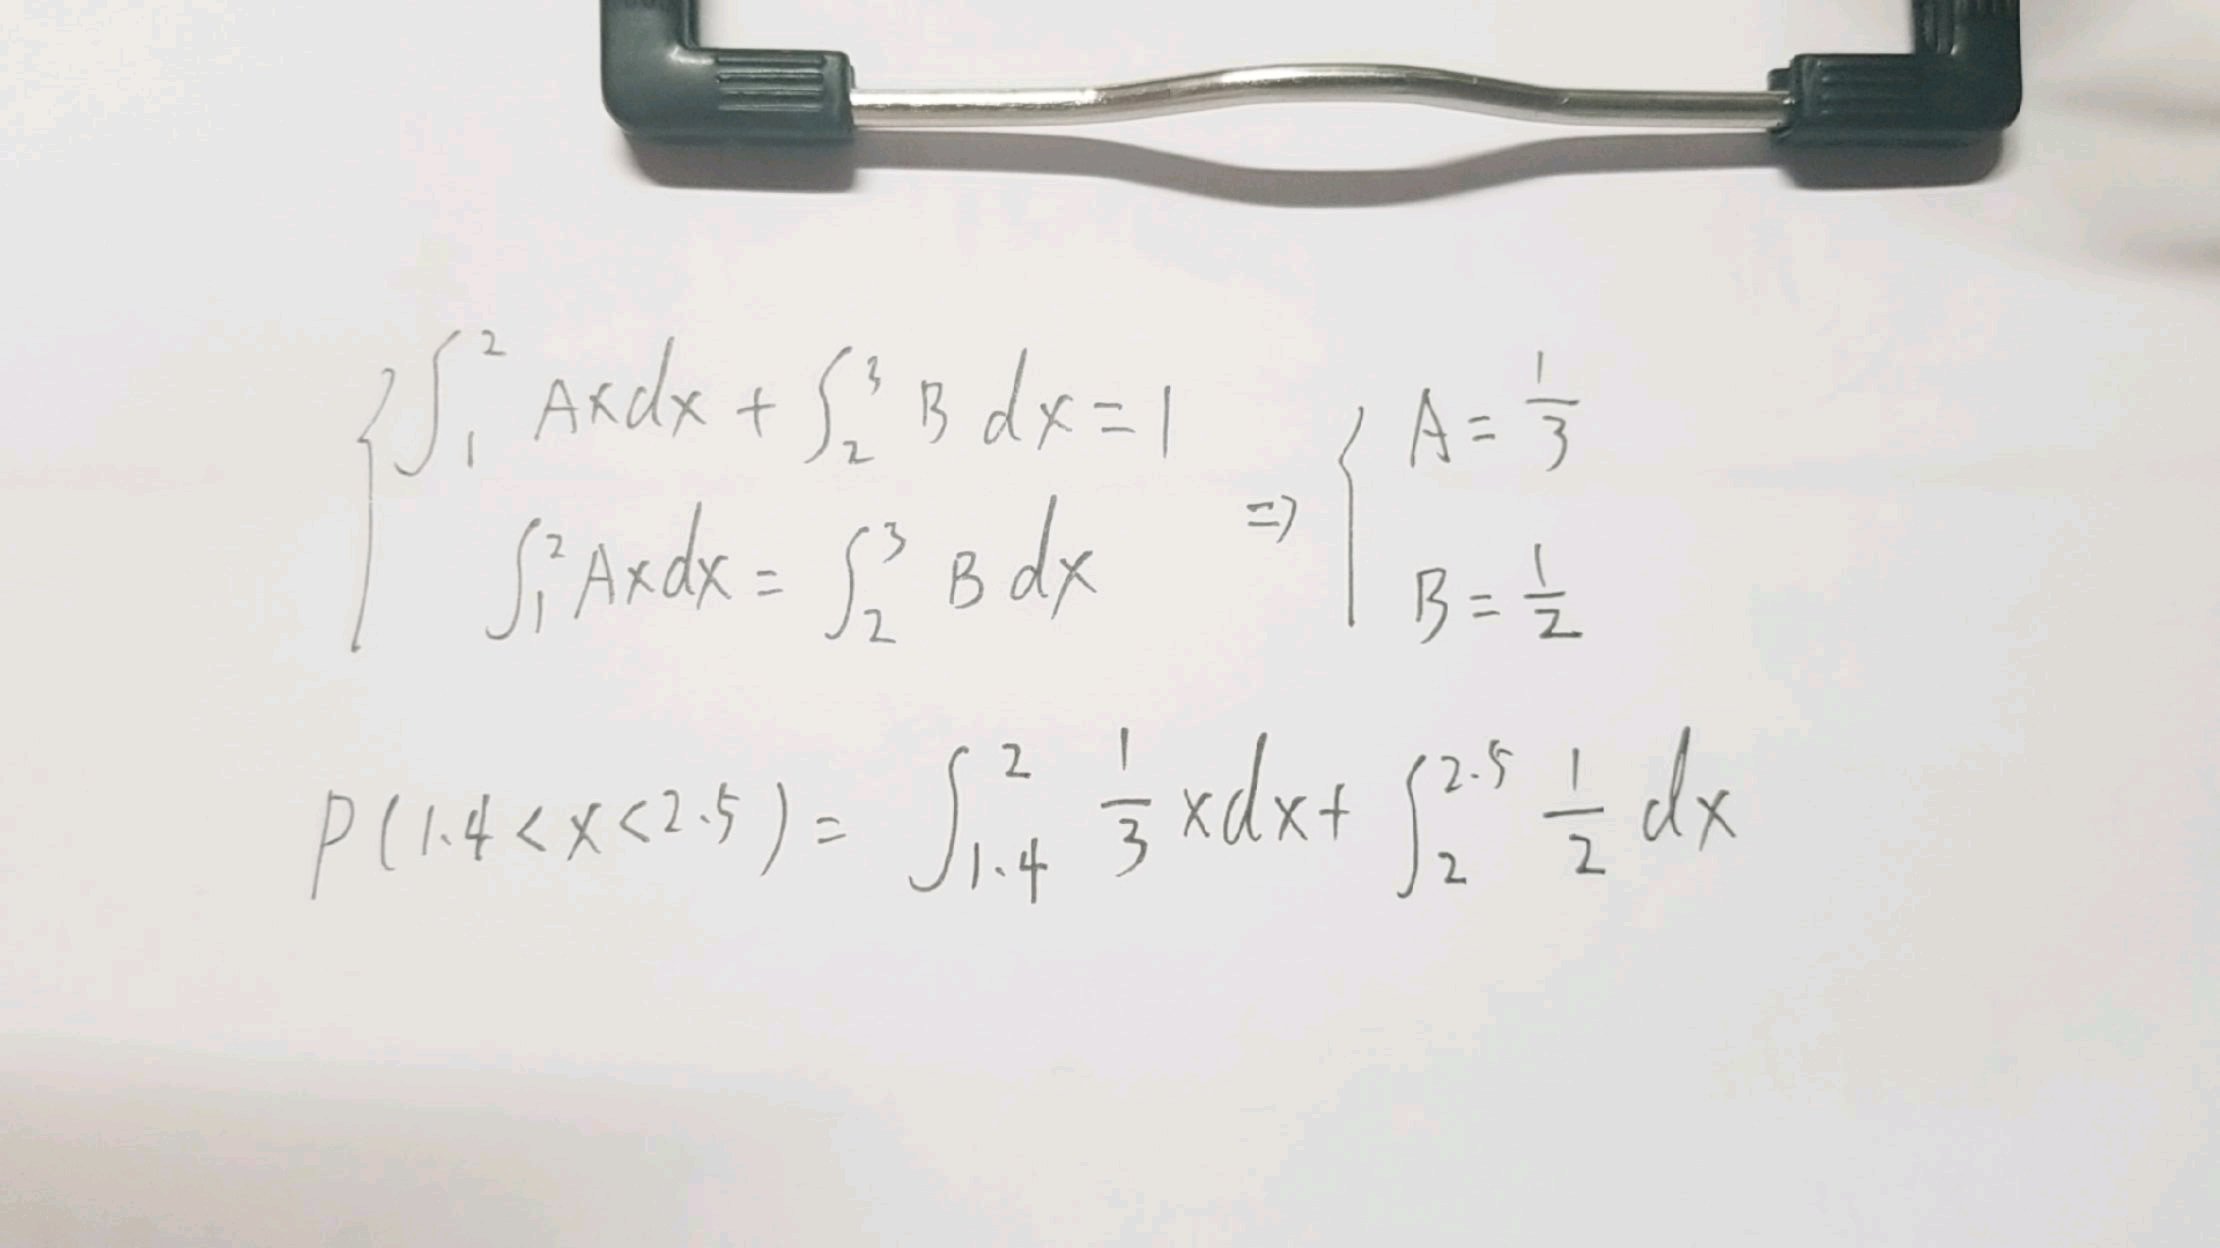 { ∫₁² Axdx + ∫₂³ B dx = 1
∫₁² Axdx = ∫₂³ B dx
⇒ { A = 1/3
B = 1/2
P(1.4 < x < 2.5) = ∫₁.₄² 1/3 xdx + ∫₂^2.5 1/2 dx